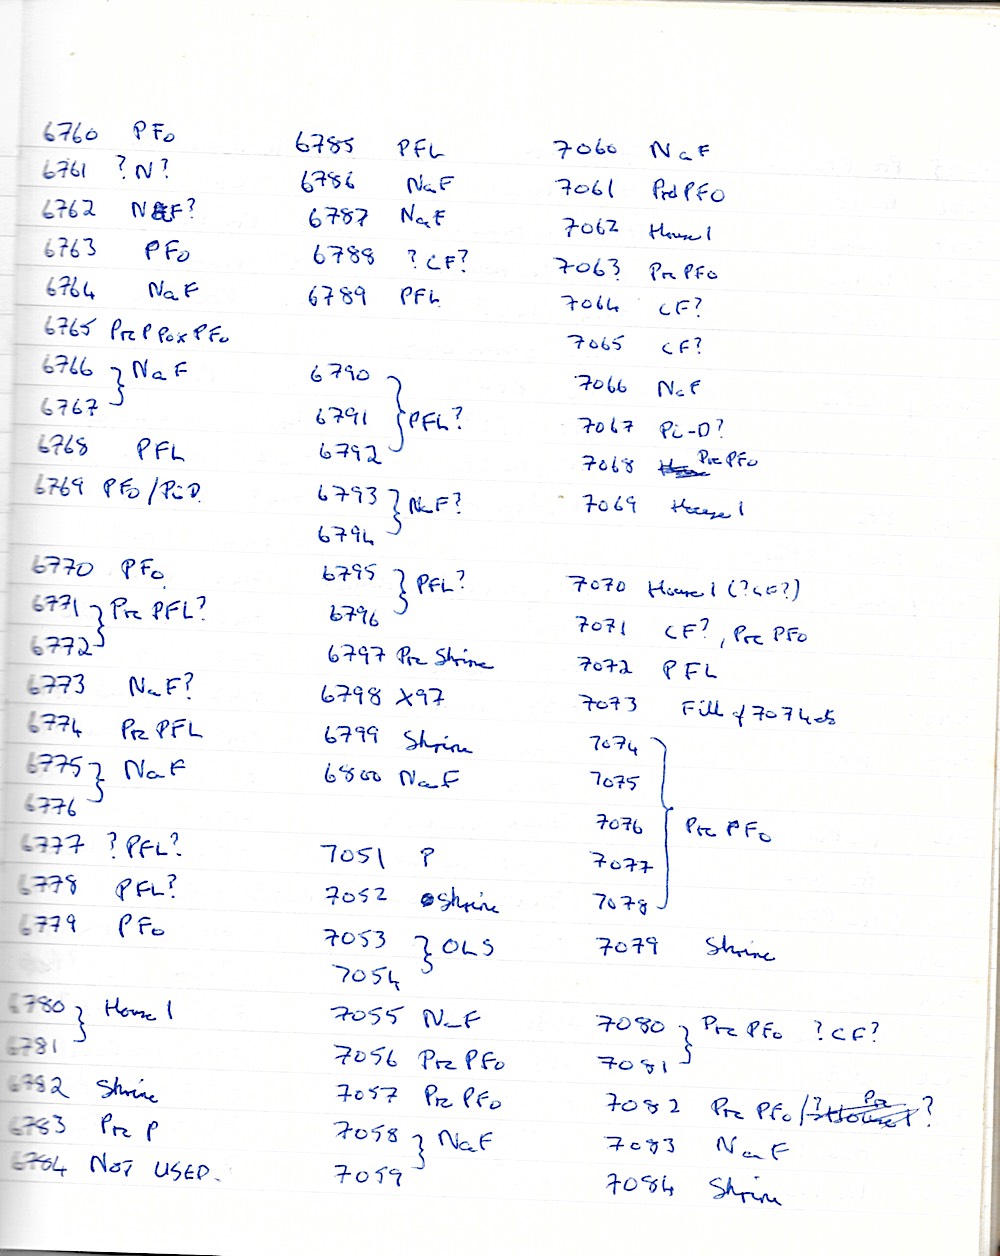 6760 PFo
6761 ?N?
6762 NaF?
6763 PFo
6764 NaF
6765 Pre P Pox PFo
6766 } NaF
6767
6768 PFL
6769 PFo/PiD
6770 PFo
6771 } Pre PFL?
6772
6773 NaF?
6774 Pre PFL
6775 } NaF
6776
6777 ?PFL?
6778 PFL?
6779 PFo
6780 } House 1
6781
6782 Shrine
6783 Pre P
6784 NOT USED.
6785 PFL
6786 NaF
6787 NaF
6788 ?CF?
6789 PFL
6790
6791 } PFL?
6792
6793 } NaF?
6794
6795 } PFL?
6796
6797 Pre Shrine
6798 X97
6799 Shrine
6800 NaF
7051 P
7052 Shrine
7053 } OLS
7054
7055 NaF
7056 Pre PFo
7057 Pre PFo
7058 } NaF
7059
7060 NaF
7061 Pre PFO
7062 House 1
7063 Pre PFo
7064 CF?
7065 CF?
7066 NaF
7067 Pi-D?
7068 Pre PFo
7069 House 1
7070 House 1 (?CF?)
7071 CF?, Pre PFo
7072 PFL
7073 Fill of 7074
7074
7075
7076 } Pre PFo
7077
7078
7079 Shrine
7080 } Pre PFo ?CF?
7081
7082 Pre PFo/? Pre House 1?
7083 NaF
7084 Shrine